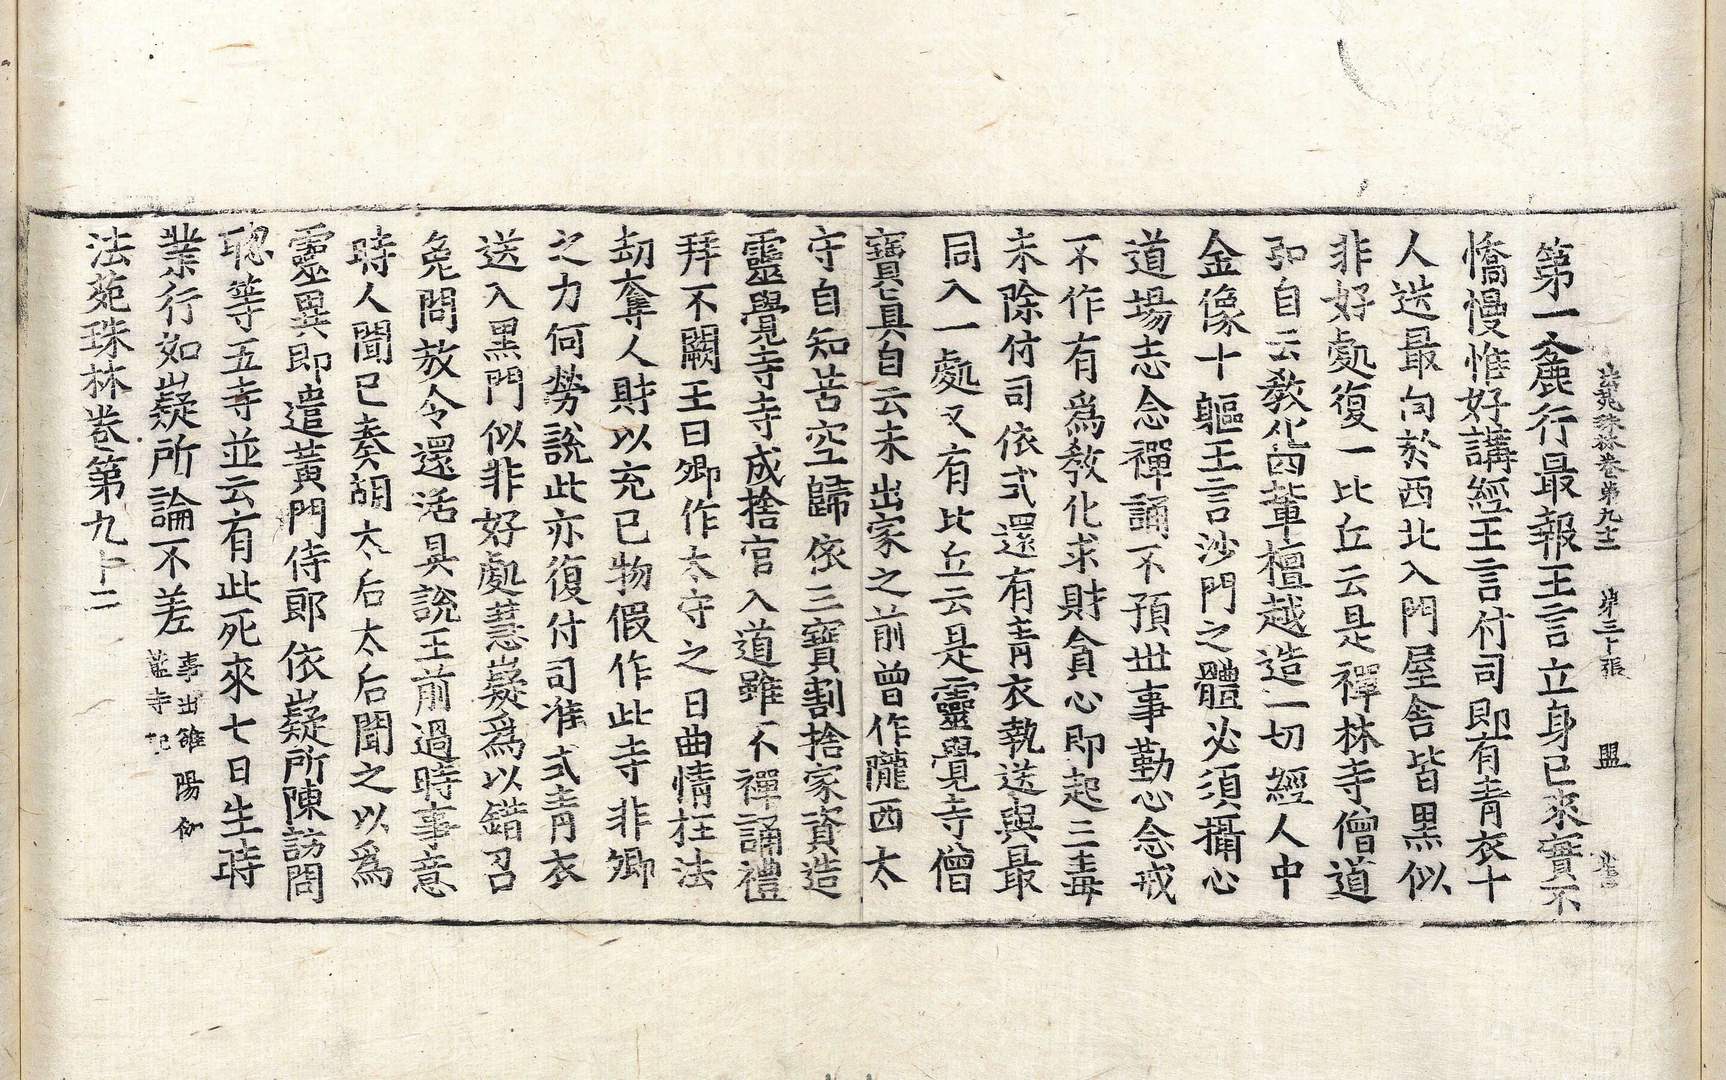 法苑珠林卷第九十二 第三十張 盟
第一麁行最報王言立身已來實不
憍慢惟好講經王言付司即有青衣十
人送最向於西北入門屋舍皆黑似
非好處復一比丘云是禪林寺僧道
弘自云教化四輩檀越造一切經人中
金像十軀王言沙門之體必須攝心
道場志念禪誦不預世事勤心念戒
不作有爲教化求財貪心即起三毒
未除付司依式還有青衣執送與最
同入一處又有比丘云是靈覺寺僧
寶真自云未出家之前曾作隴西太
守自知苦空歸依三寶割捨家資造
靈覺寺寺成捨官入道雖不禪誦禮
拜不闕王曰卿作太守之日曲情枉法
劫奪人財以充已物假作此寺非卿
之力何勞說此亦復付司准式青衣
送入黑門似非好處慧嶷爲以錯召
免問放令還活具說王前過時事意
時人聞已奏胡太后太后聞之以爲
靈異即遣黃門侍郎依嶷所陳訪問
聰等五寺並云有此死來七日生時
業行如嶷所論不差
事出雒陽伽
藍寺記
法苑珠林卷第九十二